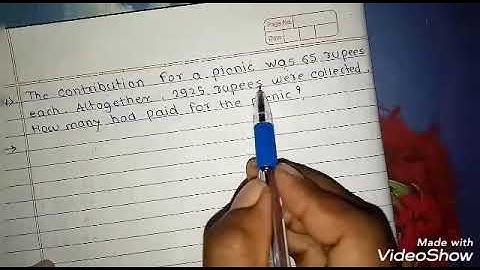 Page No.
Date
The contribution for a picnic was 65 rupees
each. Altogether, 2925 rupees were collected.
How many had paid for the picnic?
→
Made with
VideoShow